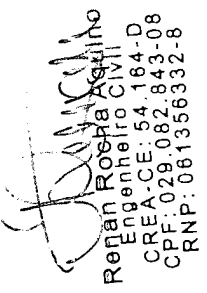 Renan Rocha Aquino
Engenheiro Civil
CREA-CE: 54.184-D
CPF: 029.082.843-08
RNP: 061356332-8